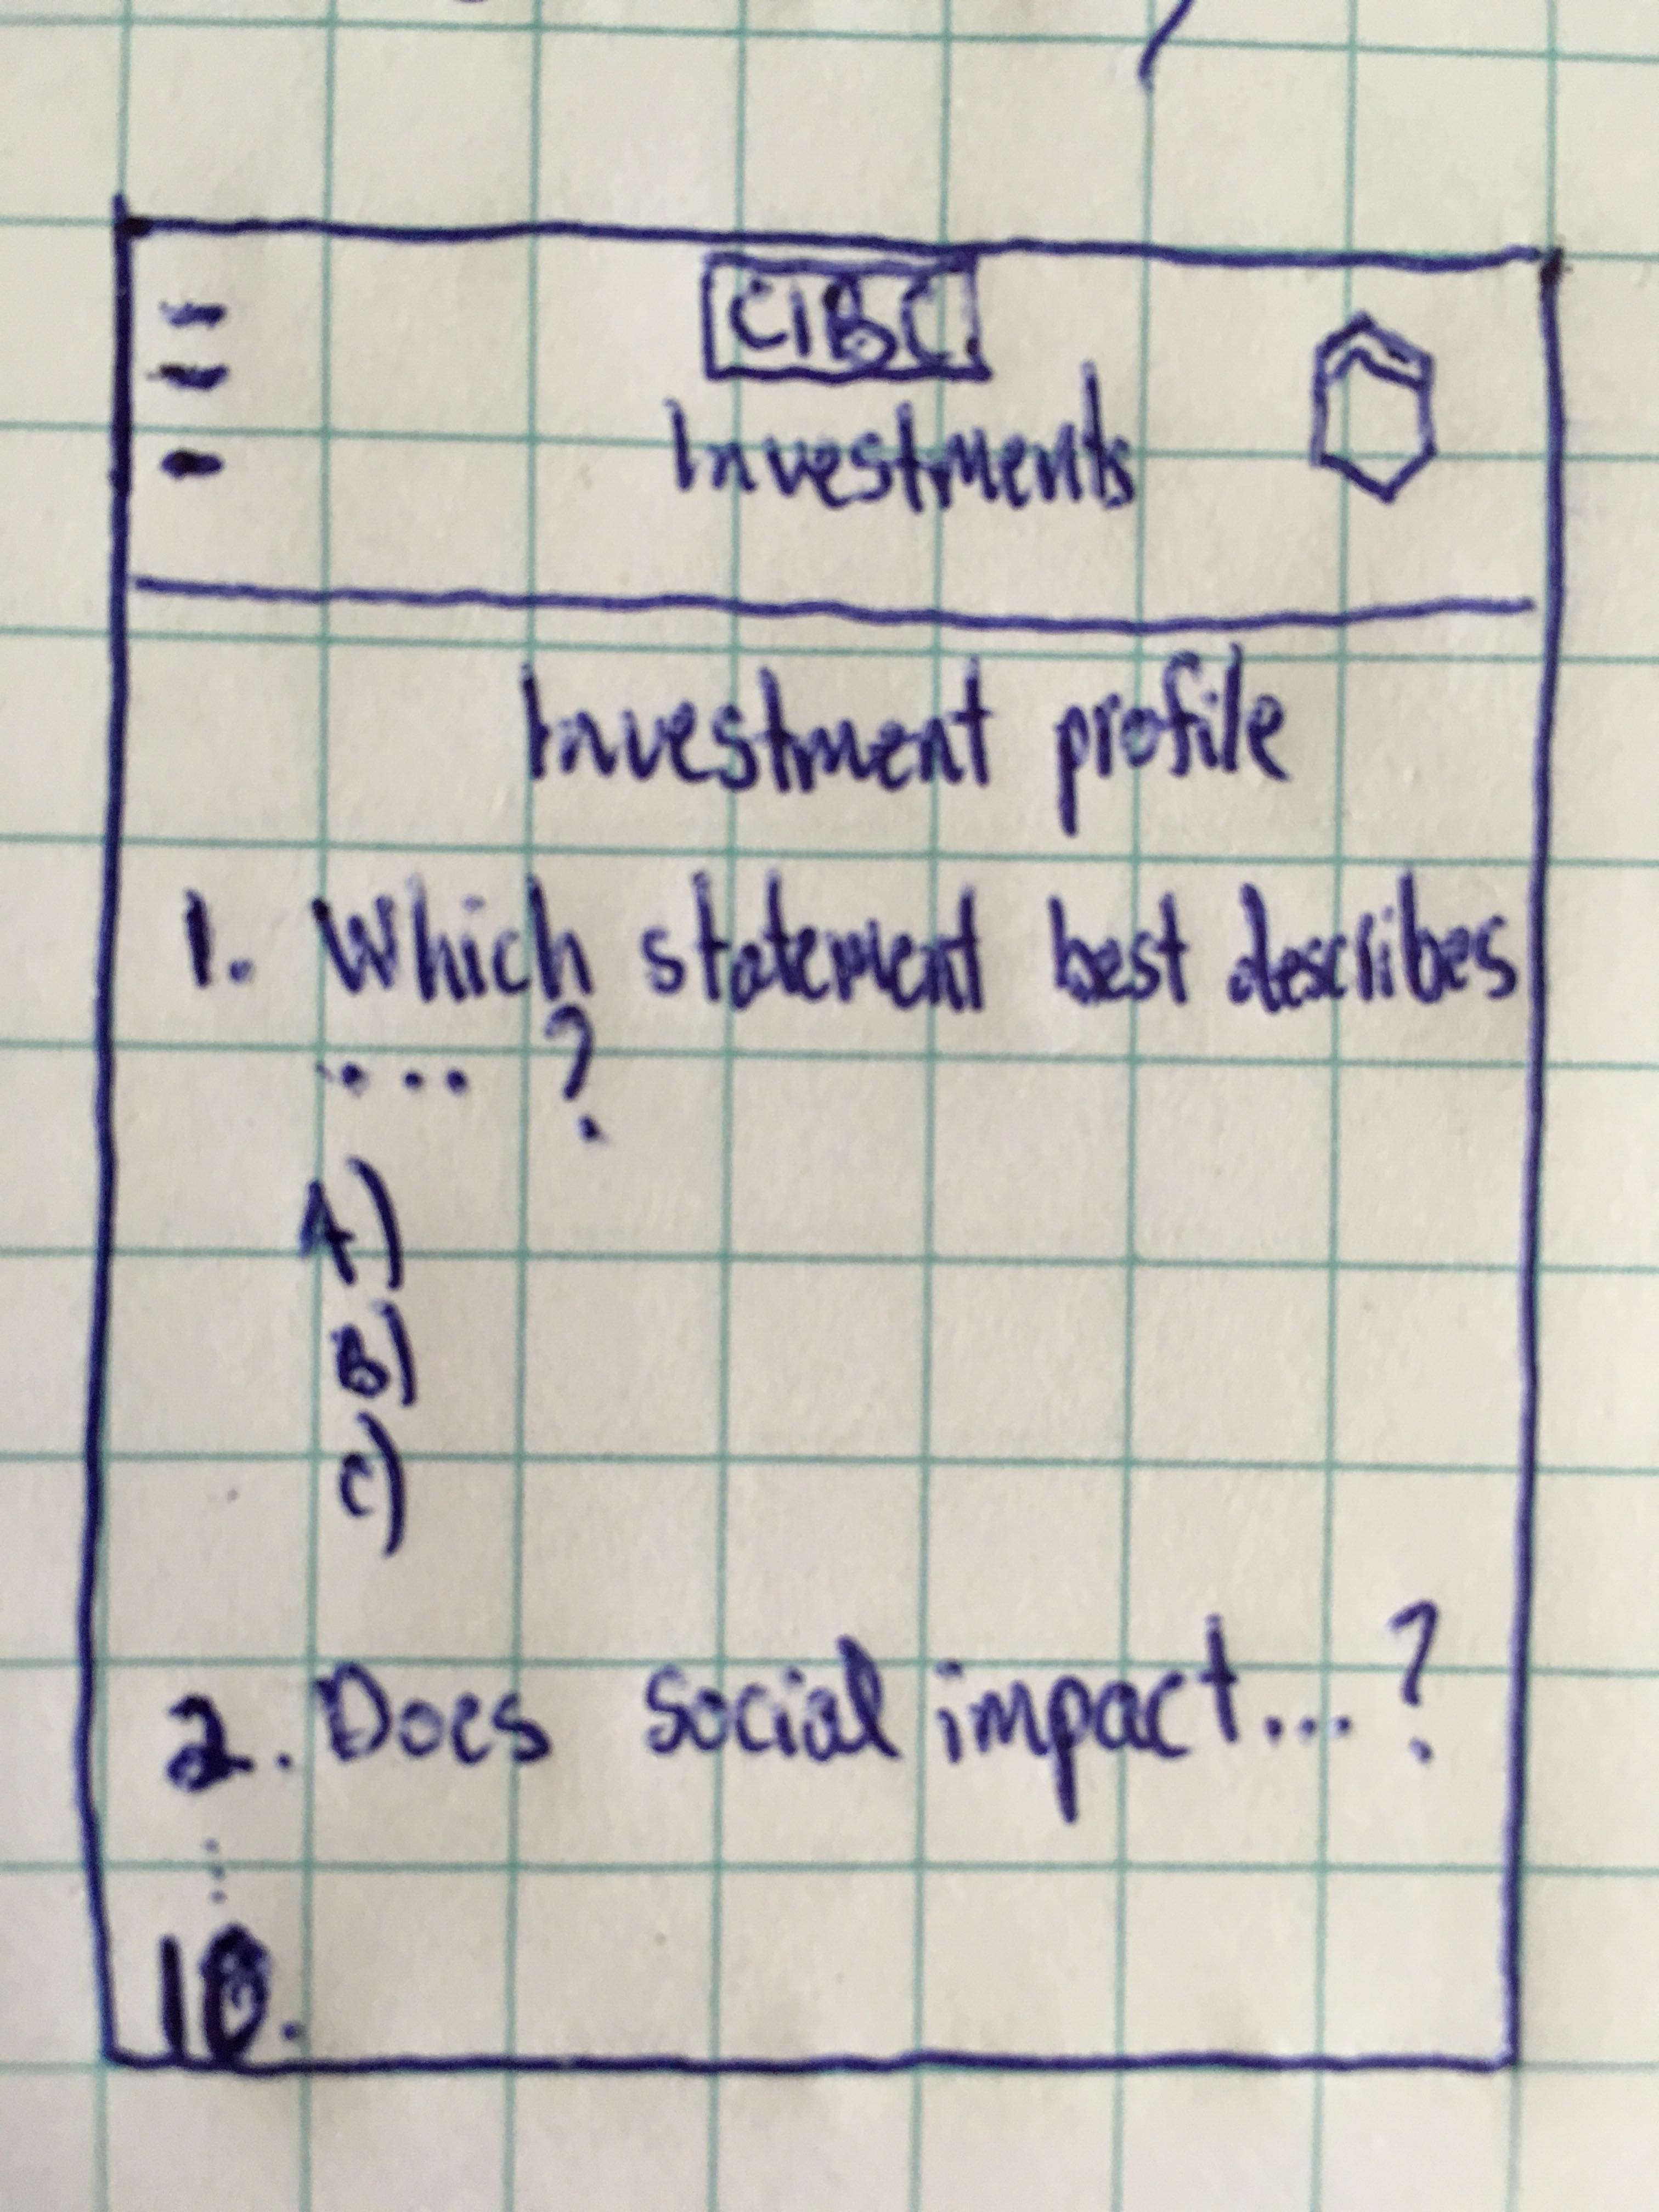 CIBC
Investments
Investment profile
1. Which statement best describes
.... ?
A)
B)
C)
2. Does social impact...?
⋮
10.